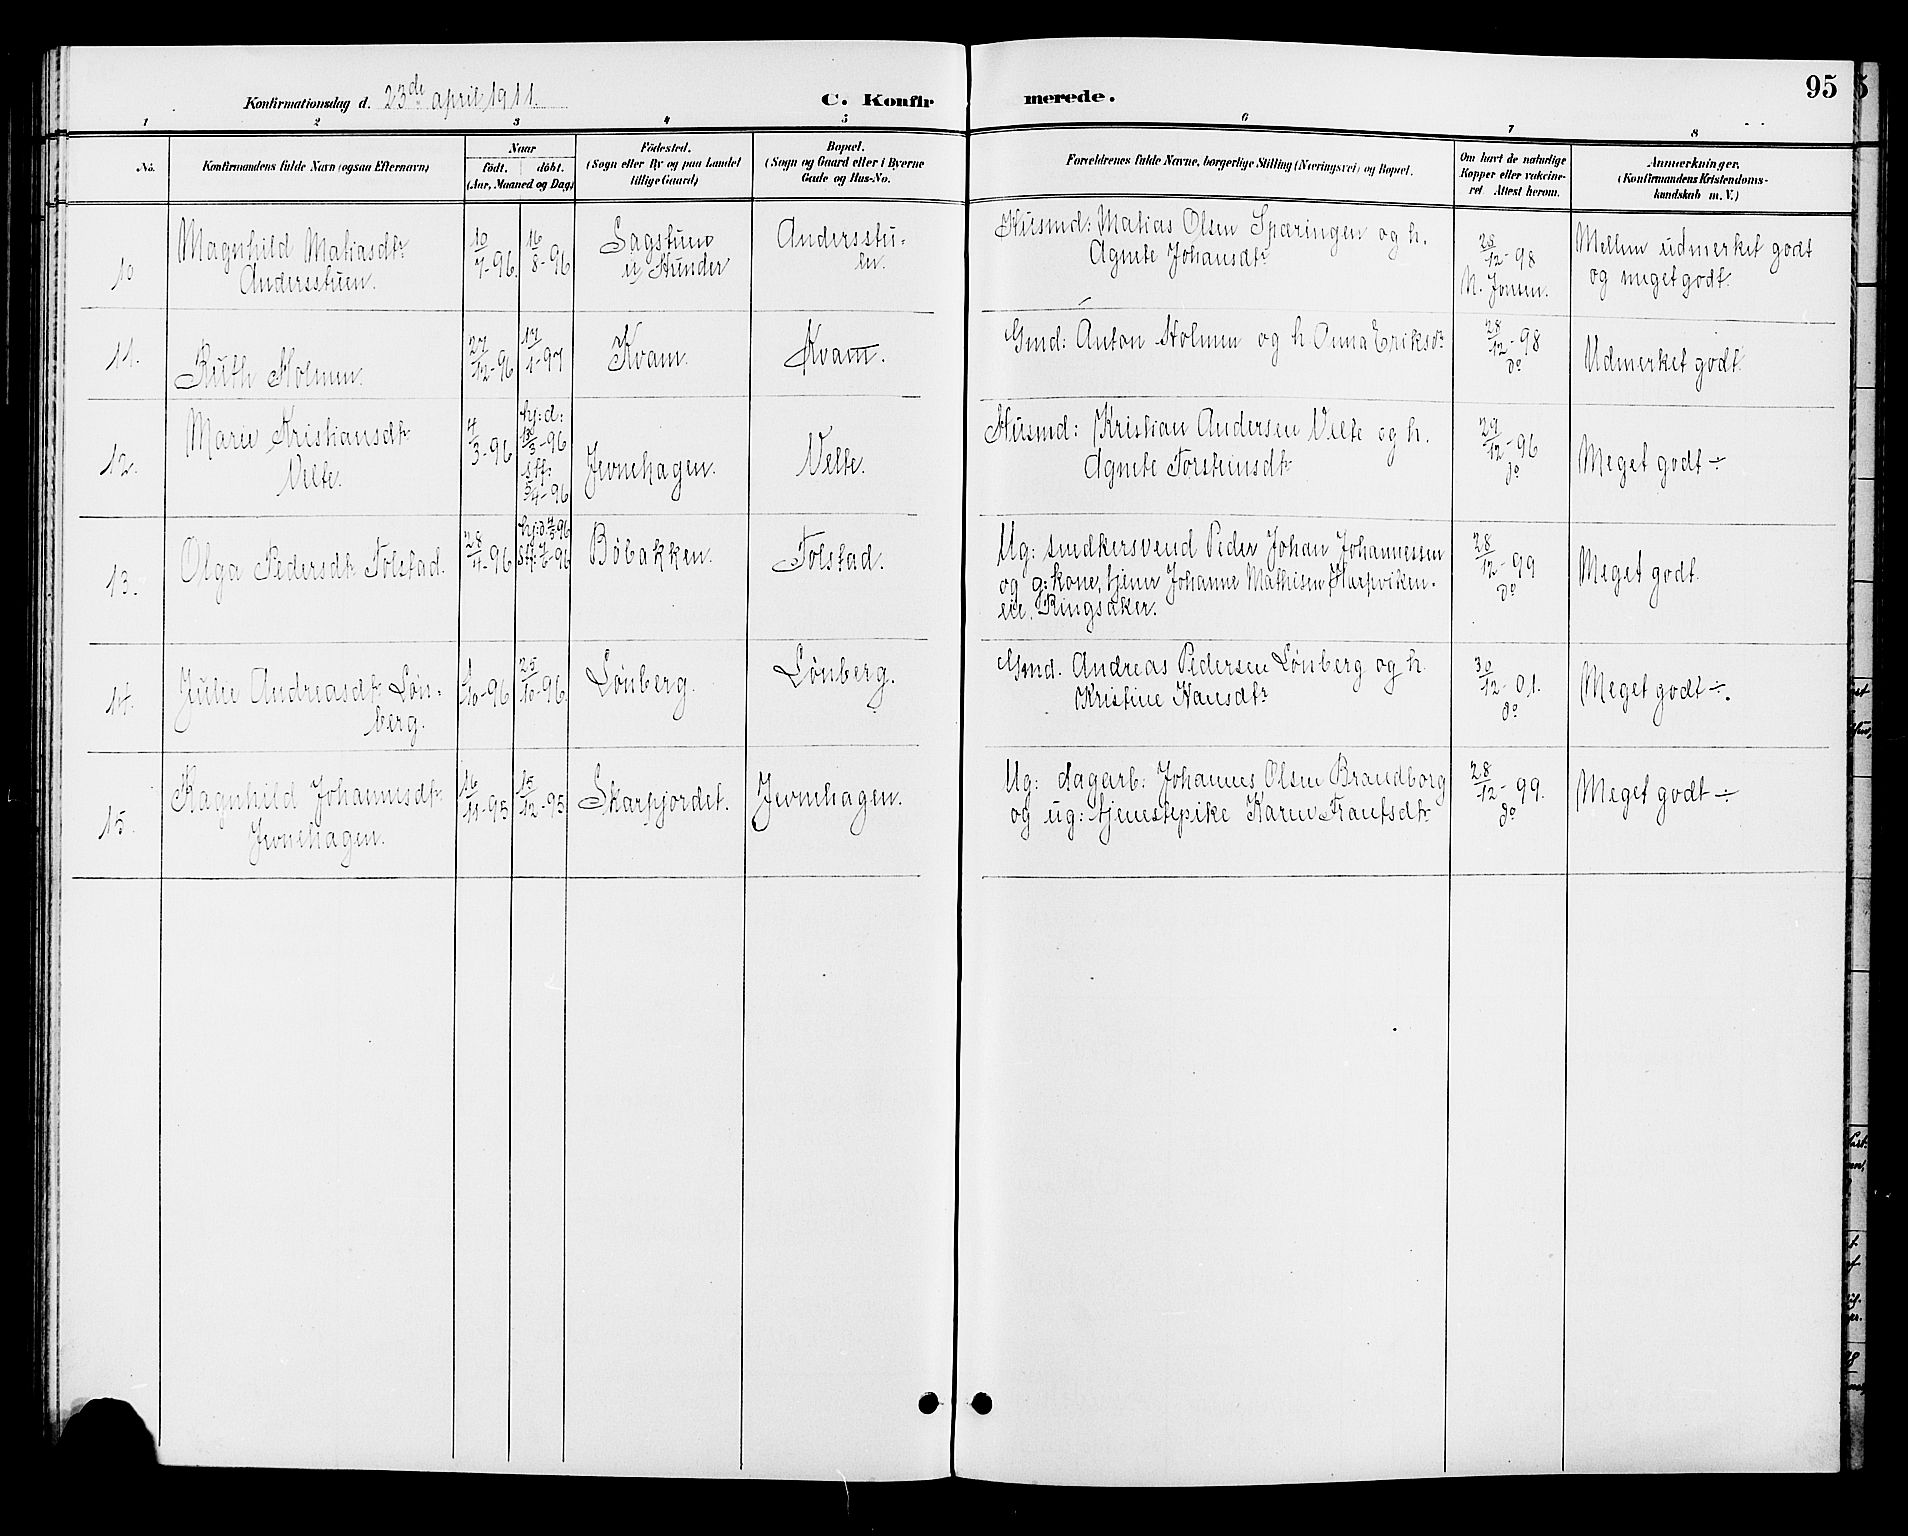 Konfirmationsdag d. 23de april 1911.
C. Konfirmerede.
95
1 2 3 4 5 6 7 8
No.
Konfirmandens fulde Navn (ogsaa Efternavn)
Naar
födt. döbt.
(Aar, Maaned og Dag)
Födested.
(Sogn eller By og paa Landet
tillige Gaard)
Bopæl.
(Sogn og Gaard eller i Byerne
Gade og Hus-No.
Forældrenes fulde Navne, borgerlige Stilling (Næringsvei) og Bopæl.
Om havt de naturlige
Kopper eller vakcine-
ret Attest herom.
Anmærkninger.
(Konfirmandens Kristendoms-
kundskab m. V.)
10
Magnhild Matiasdtr
Andersstuen.
10/7-96.
16/8-96
Sagstuen
u/ Hunder
Andersstu-
en.
Husmd: Matias Olsen Spæringen og h.
Agnete Johansdtr
28/12-98
N. Jonsen.
Mellem udmerket godt
og meget godt.
11.
Ruth Holmen.
27/12-96
17/1-97
Kvam.
Kvam.
Gmd: Anton Holmen og h. Anna Eriksdr
28/12-98
do
Udmerket godt.
12.
Marie Kristiansdtr
Velte.
4/3-96
hj: d:
13/3-96
Stf:
5/4-96
Jevnehagen.
Velte.
Husmd: Kristian Andersen Velte og h.
Agnete Torsteinsdtr
29/12-96
do
Meget godt ÷
13.
Olga Pedersdtr Tolstad.
28/4-96
Bøbakken.
Tolstad.
Ug: smedkersvend Peder Johan Johannessen
og g: kone, tjener Johanne Mathisen Harpviken-
eie, Ringsaker.
28/12-99
do
Meget godt.
14.
Julie Andreasdtr Løn-
berg.
25/10-96.
Lønberg.
Lønberg.
Gmd. Andreas Pedersen Lønberg og h.
Kristine Hansdtr
30/12-01.
do
Meget godt ÷.
15.
Ragnhild Johannesdtr
Jevnehagen.
16/11-95
15/12-95
Skarpjordet.
Jevnehagen.
Ug: dagarb: Johannes Olsen Brandborg
og ug: tjenestepike Karen Frantsdtr
28/12-99.
do
Meget godt ÷